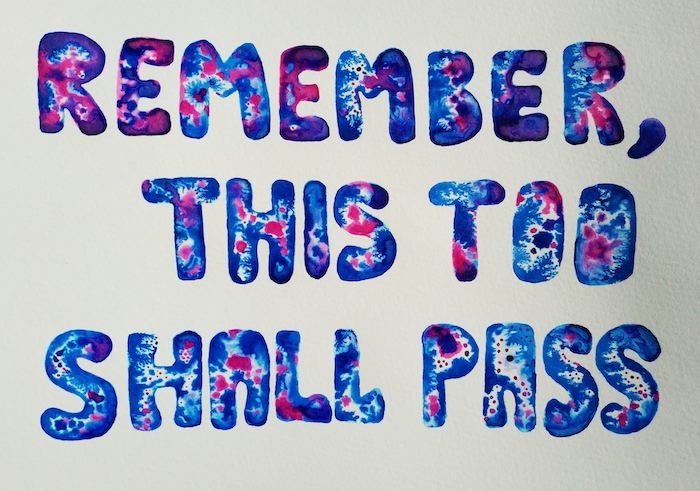 REMEMBER,
THIS TOO
SHALL PASS